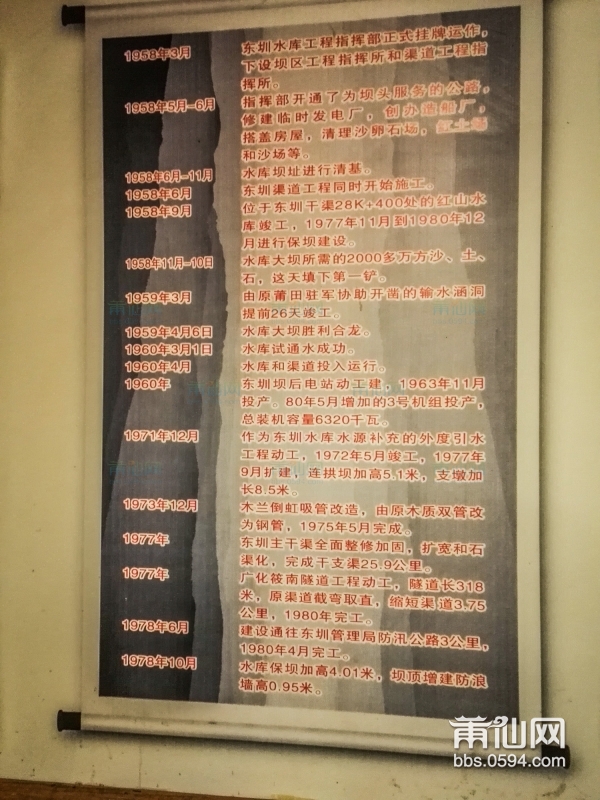 1958年3月 东圳水库工程指挥部正式挂牌运作，
下设坝区工程指挥所和渠道工程指
挥所。
1958年5月-6月 指挥部开通了为坝头服务的公路，
修建临时发电厂，创办造船厂，
搭盖房屋，清理沙卵石场，红土场
和沙场等。
1958年6月-11月 水库坝址进行清基。
1958年6月 东圳渠道工程同时开始施工。
1958年9月 位于东圳干渠28K+400处的红山水
库竣工，1977年11月到1980年12
月进行保坝建设。
1958年11月-10日 水库大坝所需的2000多万方沙、土、
石，这天填下第一铲。
1959年3月 由原莆田驻军协助开凿的输水涵洞
提前26天竣工。
1959年4月6日 水库大坝胜利合龙。
1960年3月1日 水库试通水成功。
1960年4月 水库和渠道投入运行。
1960年 东圳坝后电站动工建，1963年11月
投产。80年5月增加的3号机组投产，
总装机容量6320千瓦。
1971年12月 作为东圳水库水源补充的外度引水
工程动工，1972年5月竣工，1977年
9月扩建，连拱坝加高5.1米，支墩加
长8.5米。
1973年12月 木兰倒虹吸管改造，由原木质双管改
为钢管，1975年5月完成。
1977年 东圳主干渠全面整修加固，扩宽和石
渠化，完成干支渠25.9公里。
1977年 广化筱南隧道工程动工，隧道长318
米，原渠道截弯取直，缩短渠道3.75
公里，1980年完工。
1978年6月 建设通往东圳管理局防汛公路3公里，
1980年4月完工。
1978年10月 水库保坝加高4.01米，坝顶增建防浪
墙高0.95米。
莆仙网
bbs.0594.com